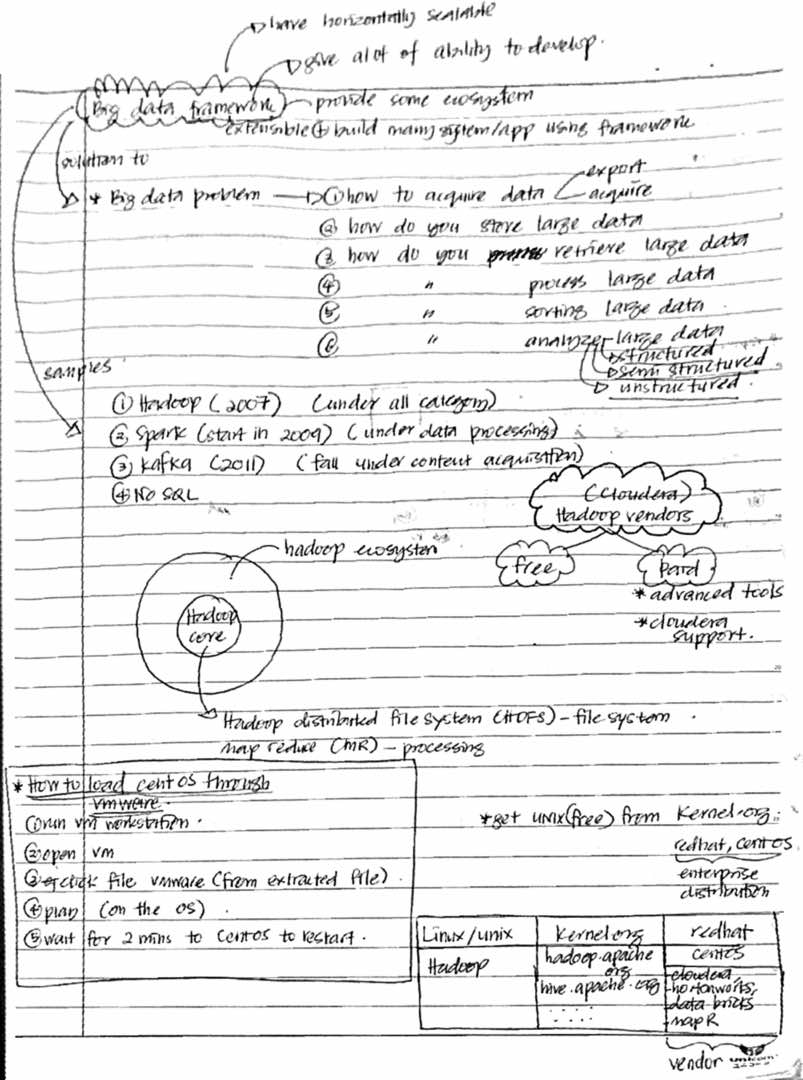 have horizontally scalable
give alot of ability to develop.
Big data framework provide some ecosystem
extensible build many system/app using framework
solution to
* Big data problem ① how to acquire data export
acquire
② how do you store large data
③ how do you retrieve large data
④ " process large data
⑤ " sorting large data
⑥ " analyze large data
structured
semi structured
unstructured.
samples
① Hadoop (2007) (under all category)
② Spark (start in 2009) (under data processing)
③ Kafka (2011) (fall under content acquisition)
④ No SQL
(Cloudera)
Hadoop vendors
free paid
* advanced tools
* cloudera
support.
hadoop ecosystem
Hadoop
core
Hadoop distributed file system (HDFS) - file system
map reduce (MR) - processing
* How to load centOS through
vmware.
① run vm workstation.
② open vm
③ click file vmware (from extracted file).
④ play (on the OS).
⑤ wait for 2 mins to CentOS to restart.
* get unix(free) from Kernel.org.
redhat, centOS
enterprise
distribution
Linux/unix Kernel.org redhat
centos
Hadoop hadoop.apache
org
hive.apache.org
.....
- cloudera,
- hortonworks,
data bricks
- mapR
vendor
unicorn